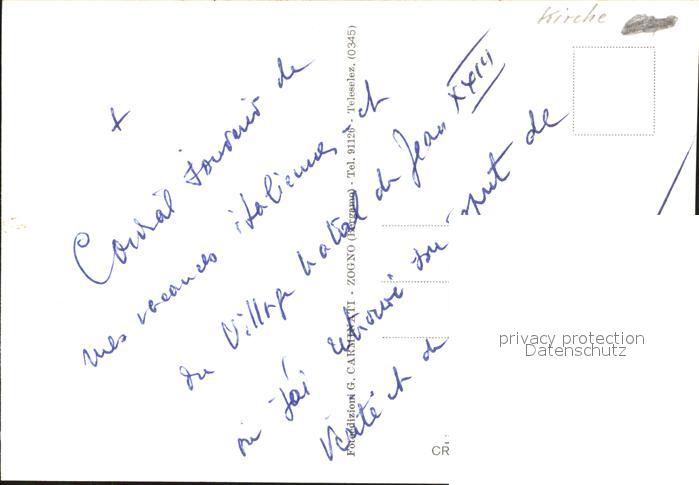 Kirche
+
Cordial souvenir de
mes vacances italiennes et
du Village natal de Jean XXIII
où j'ai retrouvé son esprit de
et de
Fotoedizioni G. CARMINATI - ZOGNO (Bergamo) - Tel. 91126 - Teleselez. (0345)
privacy protection
Datenschutz
CR